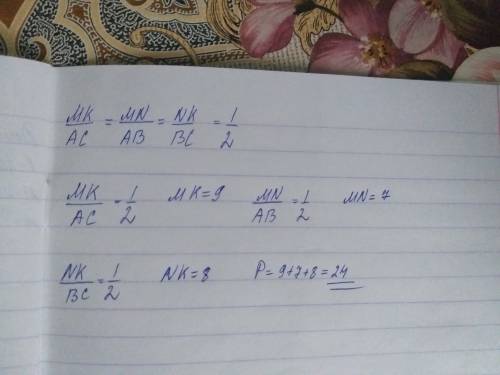 MK/AC = MN/AB = NK/BC = 1/2
MK/AC = 1/2 MK=9 MN/AB = 1/2 MN=7
NK/BC = 1/2 NK=8 P=9+7+8=24